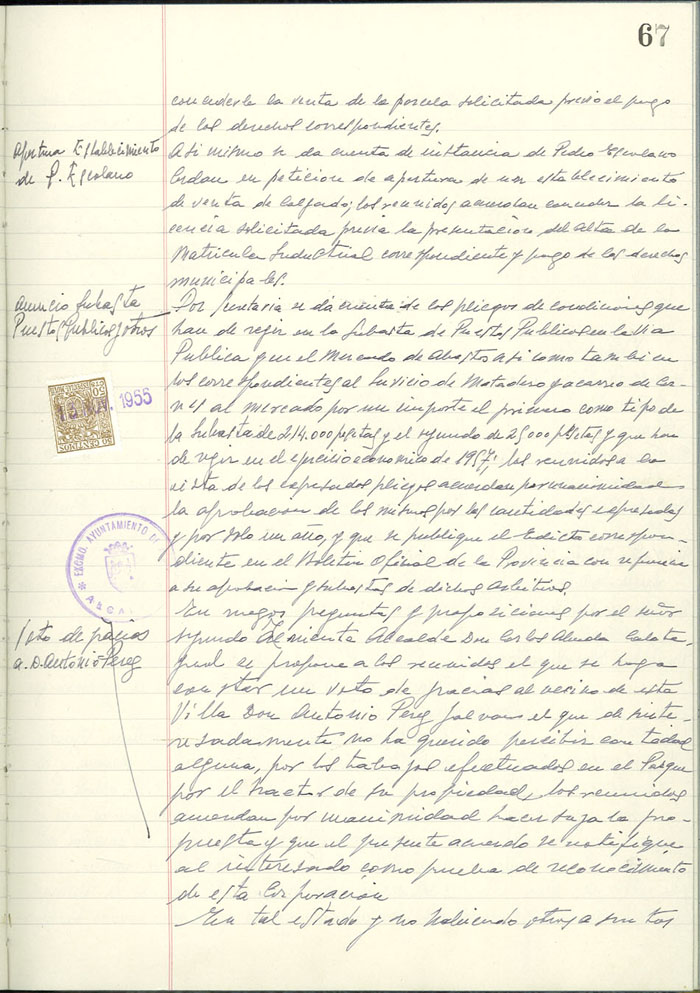 67
concederle la venta de la parcela solicitada previo el pago
de los derechos correspondientes.
Apertura Establecimiento
de P. Escolano
Asi mismo se da cuenta de instancia de Pedro Escolano
Cerdan en peticion de apertura de un establecimiento
de venta de calzado; los reunidos acuerdan conceder la li-
cencia solicitada previa la presentación del Alta de la
Matricula Industrial correspondiente y pago de los derechos
municipales.
Anuncio Subasta
Puestos Publicos y otros
Por Secretaria se da cuenta de los pliegos de condiciones que
han de regir en la Subasta de Puestos Publicos en la Via
Publica y en el Mercado de Abastos asi como tambien
los correspondientes al Servicio de Matadero y acarreo de Car-
nes al mercado por un importe el primero como tipo de
la Subasta de 214.000 pesetas y el segundo de 25000 pesetas y que han
de regir en el ejercicio economico de 1957; los reunidos a la
vista de los expresados pliegos acuerdan por unanimidad
la aprobacion de los mismos por las cantidades expresadas
y por solo un año, y que se publique el Edicto correspon-
diente en el Boletin Oficial de la Provincia con referencia
a su aprobacion y subastas de dichos arbitrios.
50 CENTIMOS
1955
EXCMO. AYUNTAMIENTO DE
Voto de gracias
a D. Antonio Perez
En ruegos preguntas y proposiciones por el señor
segundo Teniente Alcalde Don Carlos
se propone a los reunidos el que se haga
constar un voto de gracias al vecino de esta
Villa Don Antonio Perez Galvan el que desinte-
resadamente no ha querido percibir cantidad
alguna, por los trabajos efectuados en el Parque
por el tractor de su propiedad, los reunidos
acuerdan por unanimidad hacer suya la pro-
puesta y que el presente acuerdo se notifique
al interesado como prueba de reconocimiento
de esta Corporación
En tal estado y no habiendo otros asuntos